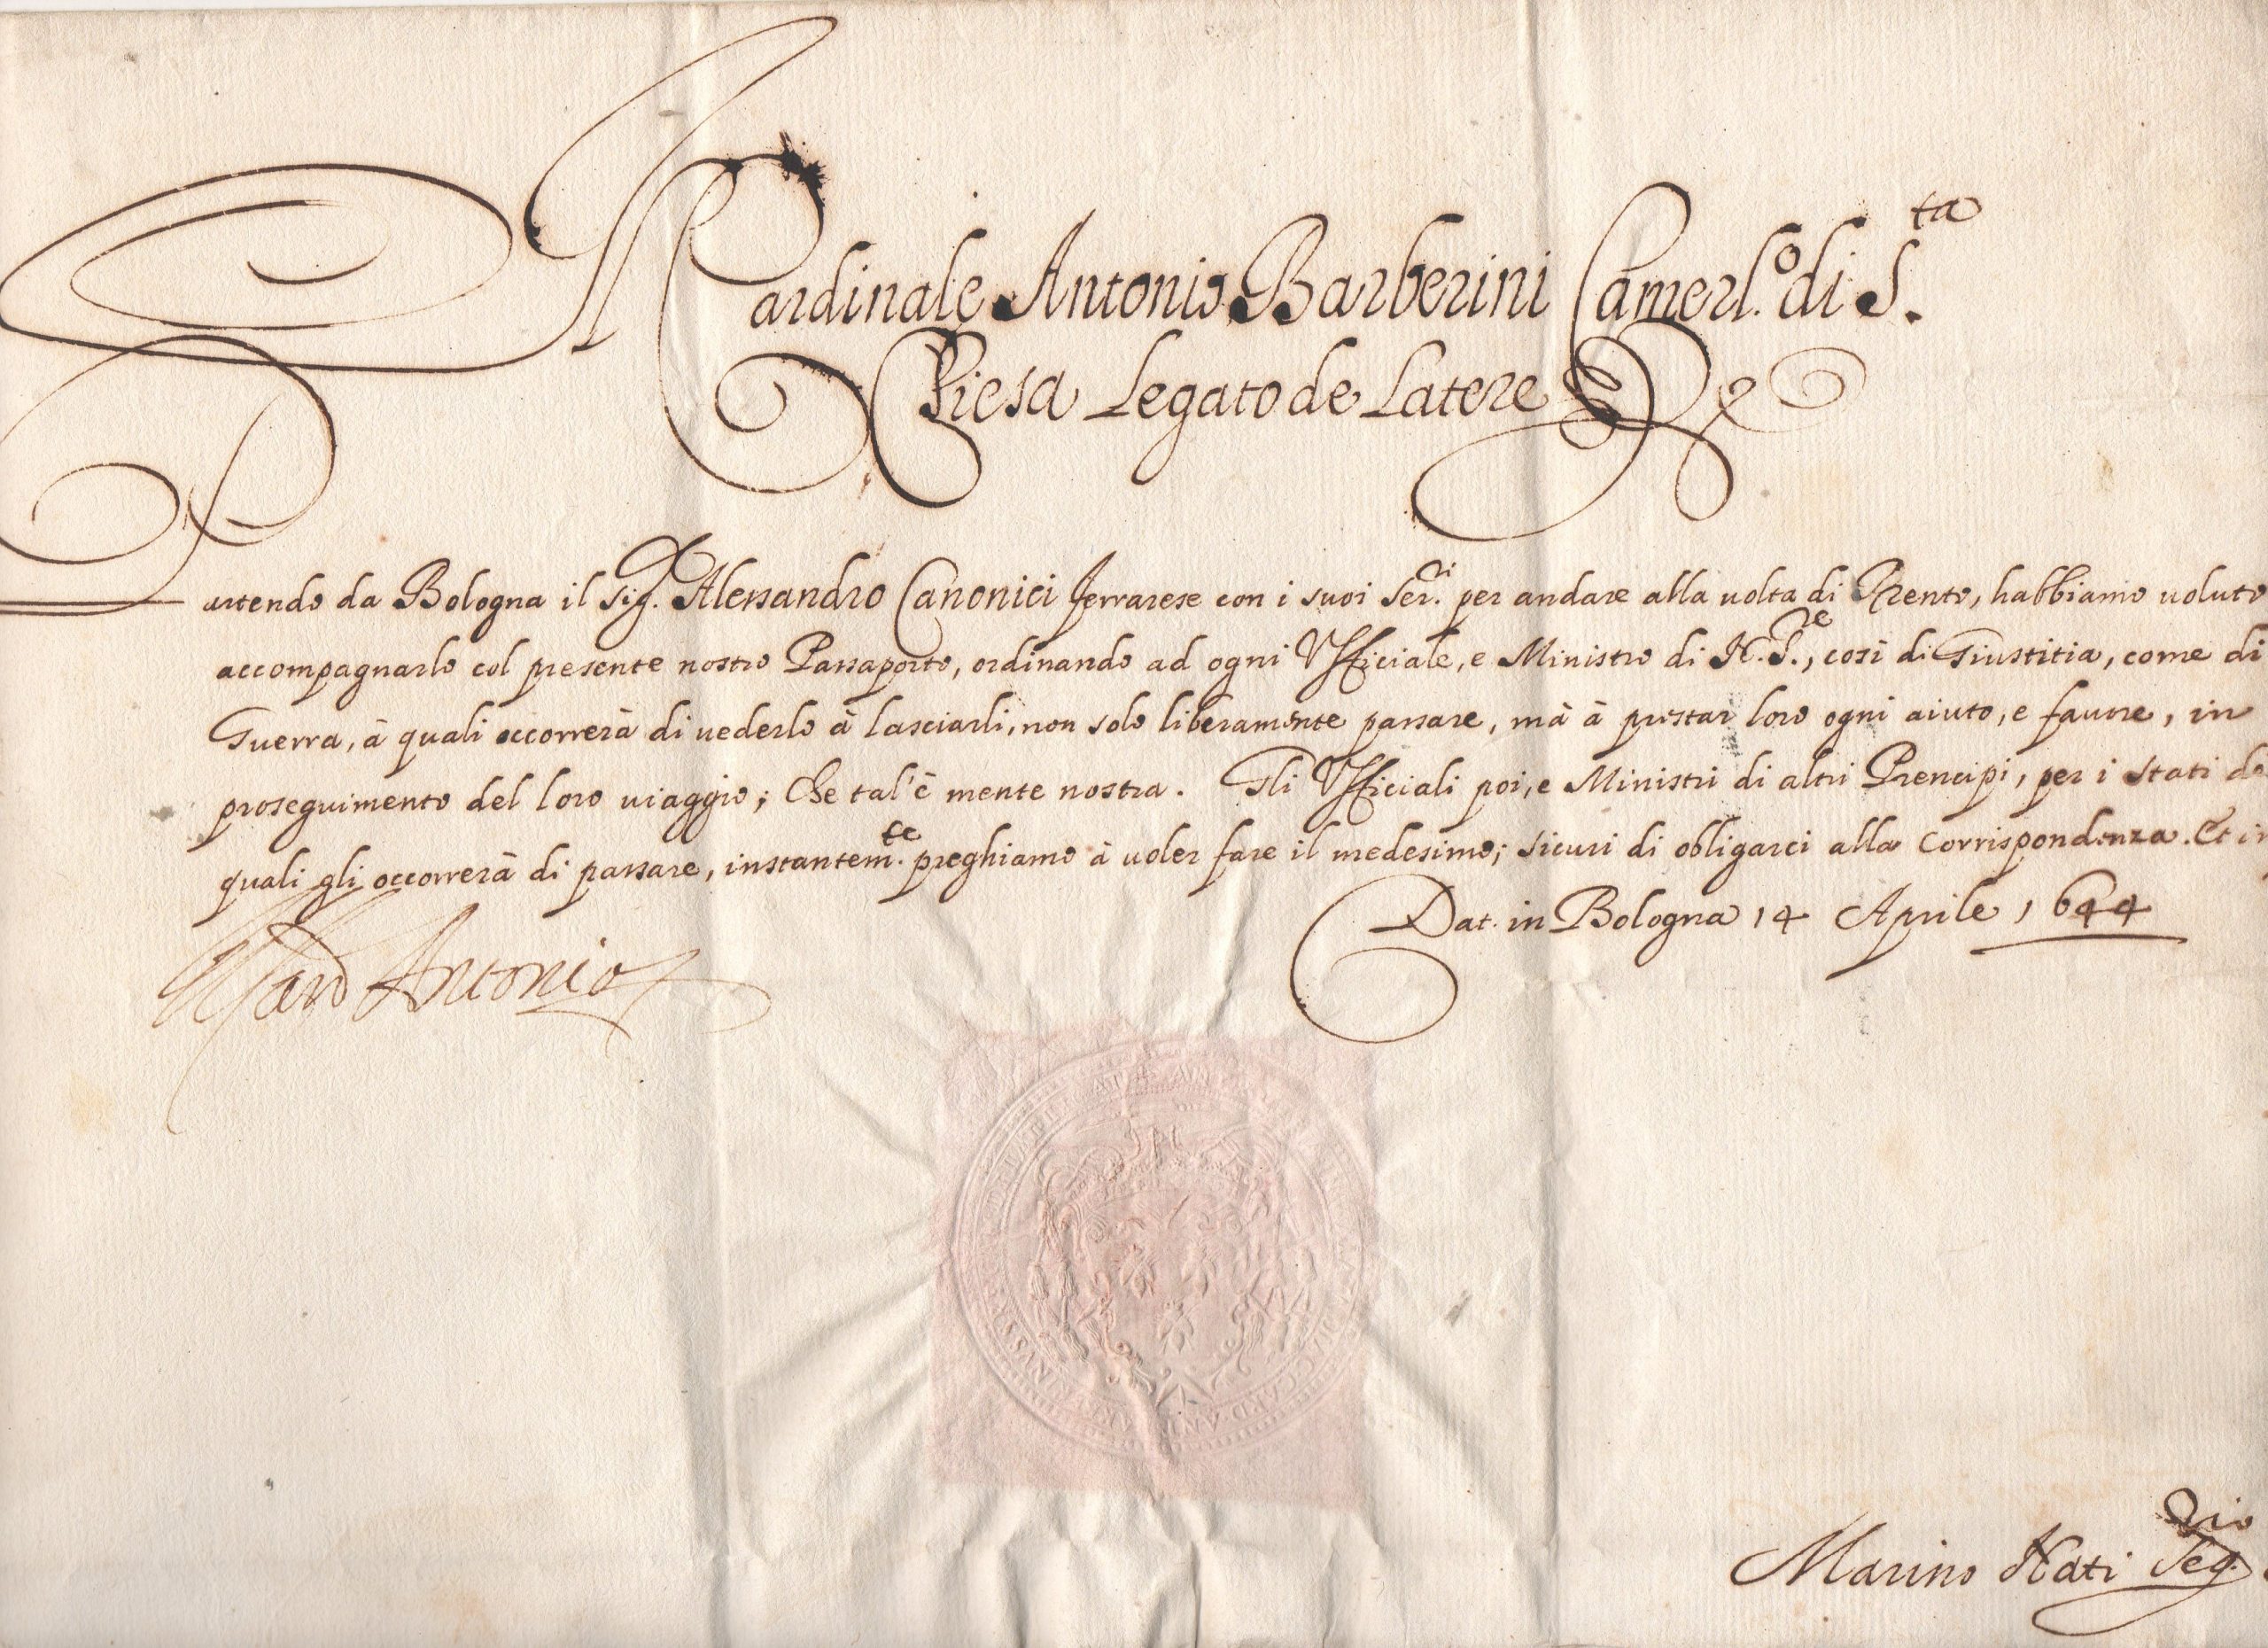 Il Cardinale Antonio Barberini Camerl.º di S.ta
Chiesa Legato de Latere &
Partendo da Bologna il Sig.r Alessandro Canonici Ferrarese con i suoi Ser.ri per andare alla uolta di Trento, habbiamo uoluto
accompagnarlo col presente nostro Passaporto, ordinando ad ogni Vfficiale, e Ministro di N. S.re, così di Giustitia, come di
Guerra, à quali occorrerà di uederlo à lasciarli, non solo liberamente passare, mà à prestar loro ogni aiuto, e fauore, in
proseguimento del loro uiaggio; Che tal'è mente nostra. Gli Vfficiali poi, e Ministri di altri Prencipi, per i Stati de
quali gli occorrerà di passare, instantem.te preghiamo à uoler fare il medesimo; sicuri di obligarci alla corrispondenza. Et in
Dat. in Bologna 14 Aprile 1644
Il Card Antonio
Marino Nati Seg.rio